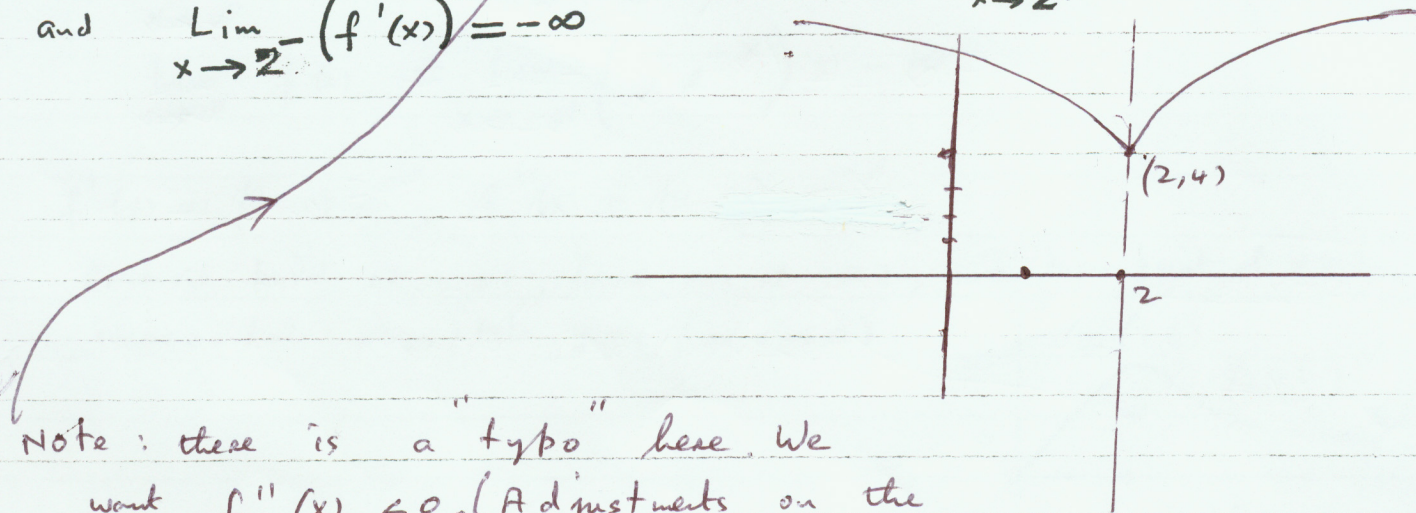 and Lim (f'(x)) = -∞
x→2⁻
x→2
(2,4)
2
Note: there is a "typo" here. We
want f''(x) <0. (Adjustments on the